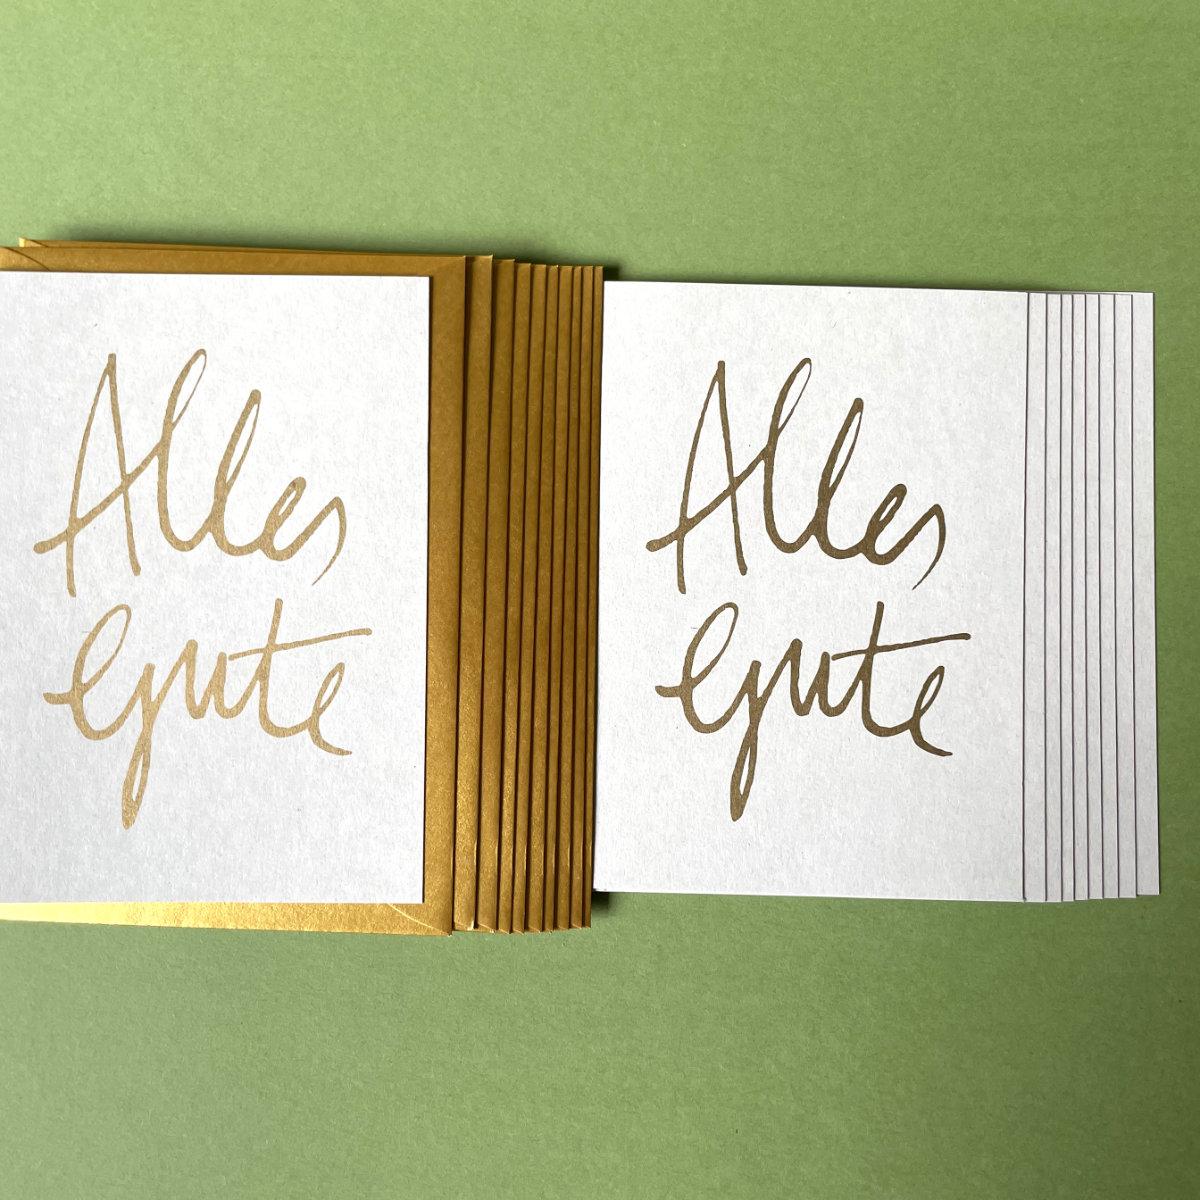 Alles
Gute
Alles
Gute